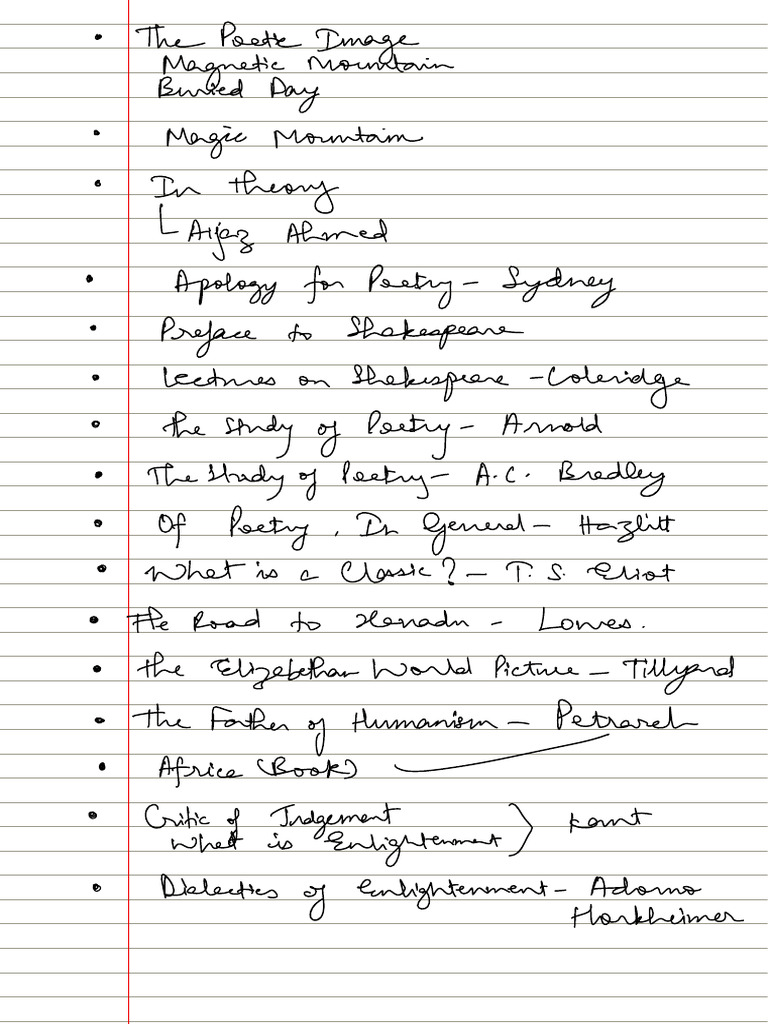 • The Poetic Image
Magnetic Mountain
Buried Day
• Magic Mountain
• In theory
Aijaz Ahmed
• Apology for Poetry - Sydney
• Preface to Shakespeare
• Lectures on Shakespeare - Coleridge
• the Study of Poetry - Arnold
• The Study of Poetry - A.C. Bradley
• Of Poetry, In General - Hazlitt
• What is a Classic? - T. S. Eliot
• The Road to Xanadu - Lowes.
• the Elizabethan World Picture - Tillyard
• The Father of Humanism - Petrarch
• Africa (Book)
• Critic of Judgement
What is Enlightenment } Kant
• Dialectics of Enlightenment - Adorno
Horkheimer